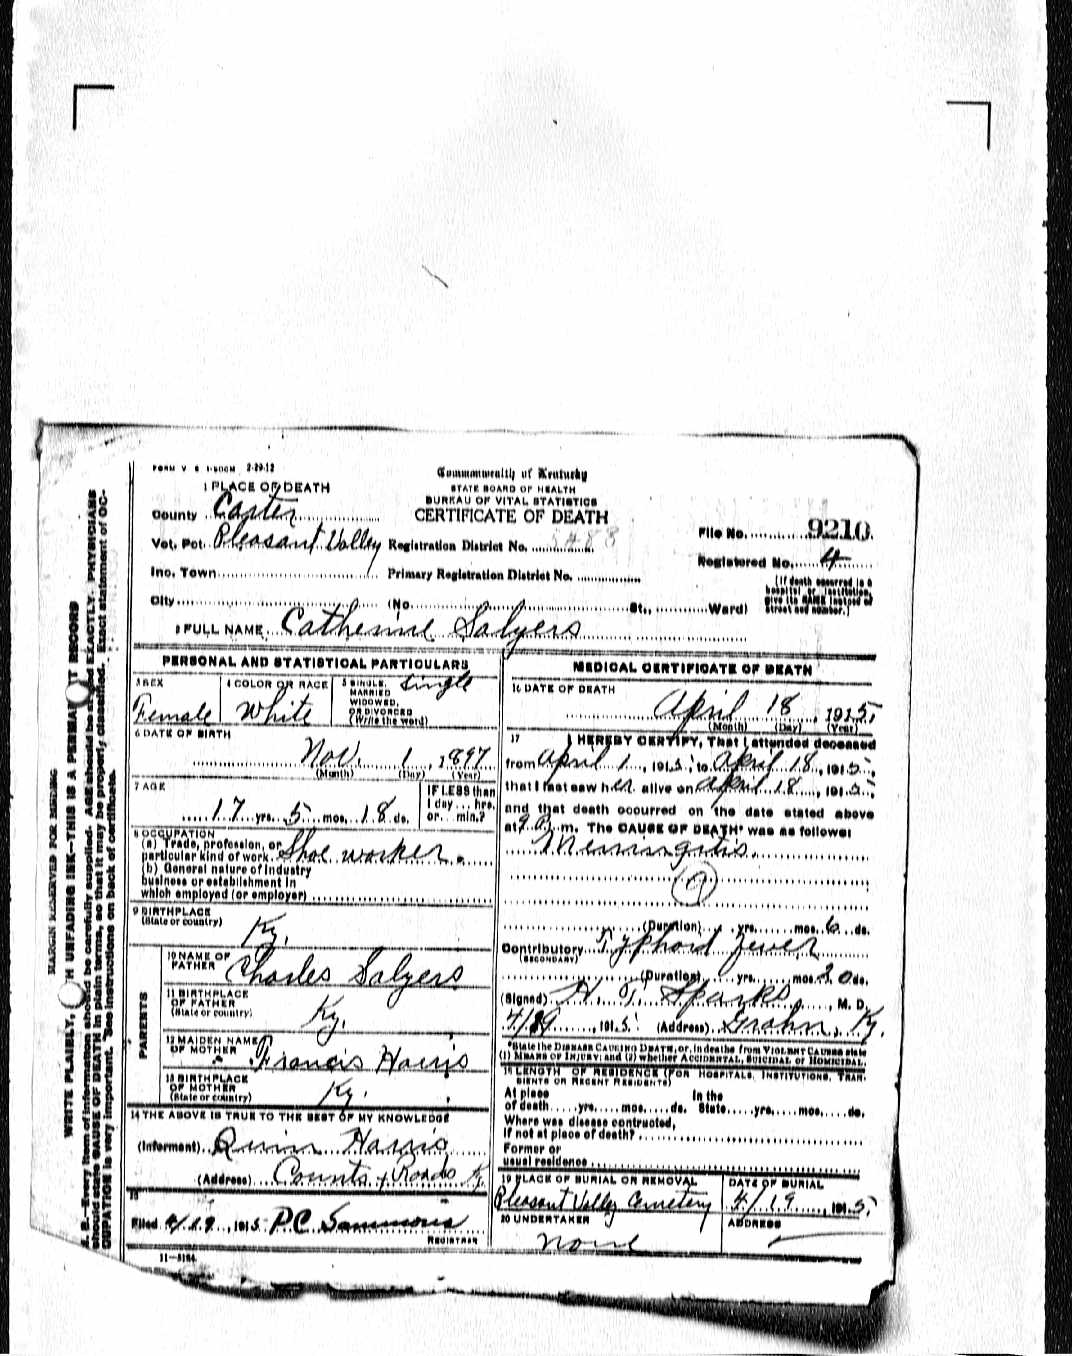 FORM V S 1-500M 2-29-12
Commonwealth of Kentucky
STATE BOARD OF HEALTH
BUREAU OF VITAL STATISTICS
CERTIFICATE OF DEATH
1 PLACE OF DEATH
County Carter
Vot. Pct. Pleasant Valley Registration District No.
File No. 9210
Registered No. 4
Inc. Town Primary Registration District No.
[If death occurred in a hospital or institution, give its NAME instead of street and number.]
City (No. St., Ward)
2 FULL NAME Catherine Salyers
PERSONAL AND STATISTICAL PARTICULARS
3 SEX
Female
4 COLOR OR RACE
White
5 SINGLE, MARRIED WIDOWED, OR DIVORCED (Write the word)
Single
6 DATE OF BIRTH
Nov. 1, 1897
(Month) (Day) (Year)
7 AGE
17 yrs. 5 mos. 18 ds.
IF LESS than 1 day ... hrs. or ... min.?
8 OCCUPATION
(a) Trade, profession, or particular kind of work Shoe worker.
(b) General nature of industry
business or establishment in
which employed (or employer)
9 BIRTHPLACE
(State or country)
Ky.
PARENTS
10 NAME OF FATHER Charles Salyers
11 BIRTHPLACE OF FATHER (State or country) Ky.
12 MAIDEN NAME OF MOTHER Francis Harris
13 BIRTHPLACE OF MOTHER (State or country) Ky.
14 THE ABOVE IS TRUE TO THE BEST OF MY KNOWLEDGE
(Informant) Quinn Harris
(Address) Counts X Roads Ky
15
Filed 4/19, 1915 P.C. Sammons
REGISTRAR
11-3184
MEDICAL CERTIFICATE OF DEATH
16 DATE OF DEATH
April 18, 1915
(Month) (Day) (Year)
17 I HEREBY CERTIFY, That I attended deceased
from April 1, 1915, to April 18, 1915,
that I last saw her alive on April 18, 1915,
and that death occurred on the date stated above
at 9 P. m. The CAUSE OF DEATH* was as follows:
Meningitis
(Duration) yrs. mos. 6 ds.
Contributory Typhoid Fever
(SECONDARY)
(Duration) yrs. mos. 20 ds.
(Signed) H. T. Sparks, M. D.
4/19, 1915 (Address) Grahn, Ky.
*State the DISEASE CAUSING DEATH, or, in deaths from VIOLENT CAUSES state
(1) MEANS OF INJURY; and (2) whether ACCIDENTAL, SUICIDAL or HOMICIDAL.
18 LENGTH OF RESIDENCE (FOR HOSPITALS, INSTITUTIONS, TRANSIENTS OR RECENT RESIDENTS)
At place of death yrs. mos. ds. In the State yrs. mos. ds.
Where was disease contracted,
If not at place of death?
Former or
usual residence
19 PLACE OF BURIAL OR REMOVAL
Pleasant Valley Cemetery
DATE OF BURIAL
4/19, 1915
20 UNDERTAKER
None
ADDRESS
MARGIN RESERVED FOR BINDING
WRITE PLAINLY, WITH UNFADING INK—THIS IS A PERMANENT RECORD
N. B.—Every item of information should be carefully supplied. AGE should be stated EXACTLY. PHYSICIANS
should state CAUSE OF DEATH in plain terms, so that it may be properly classified. Exact statement of OC-
CUPATION is very important. See instructions on back of certificate.